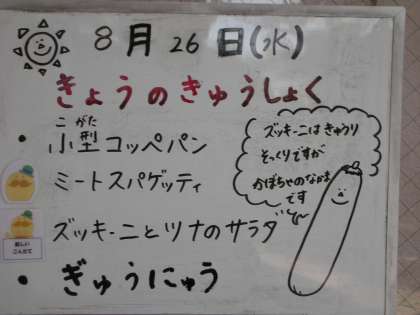 8月26日(水)
きょうのきゅうしょく
こ がた
・小型コッペパン
ミートスパゲッティ
ズッキーニとツナのサラダ
新しい
こんだて
・ぎゅうにゅう
ズッキーニはきゅうり
そっくりですが
かぼちゃのなかま
です